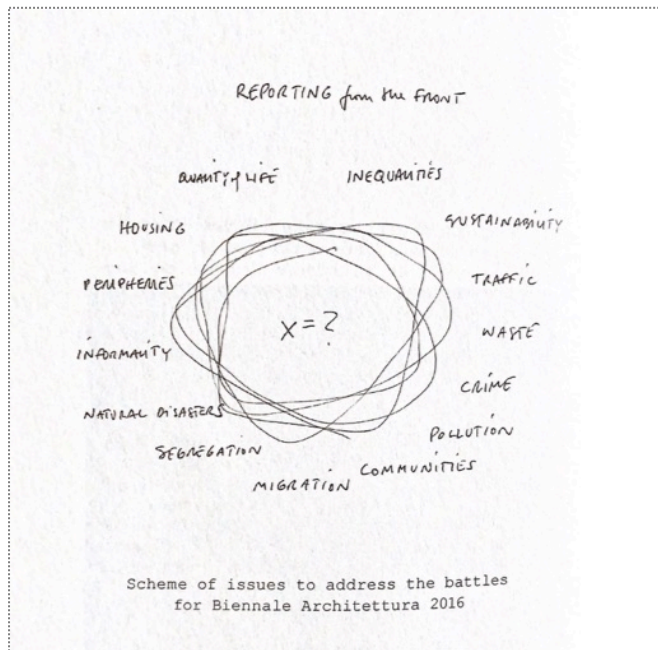 REPORTING from the FRONT
QUALITY of LIFE
INEQUALITIES
HOUSING
SUSTAINABILITY
PERIPHERIES
TRAFFIC
INFORMALITY
WASTE
NATURAL DISASTERS
CRIME
SEGREGATION
POLLUTION
MIGRATION
COMMUNITIES
X = ?
Scheme of issues to address the battles
for Biennale Architettura 2016